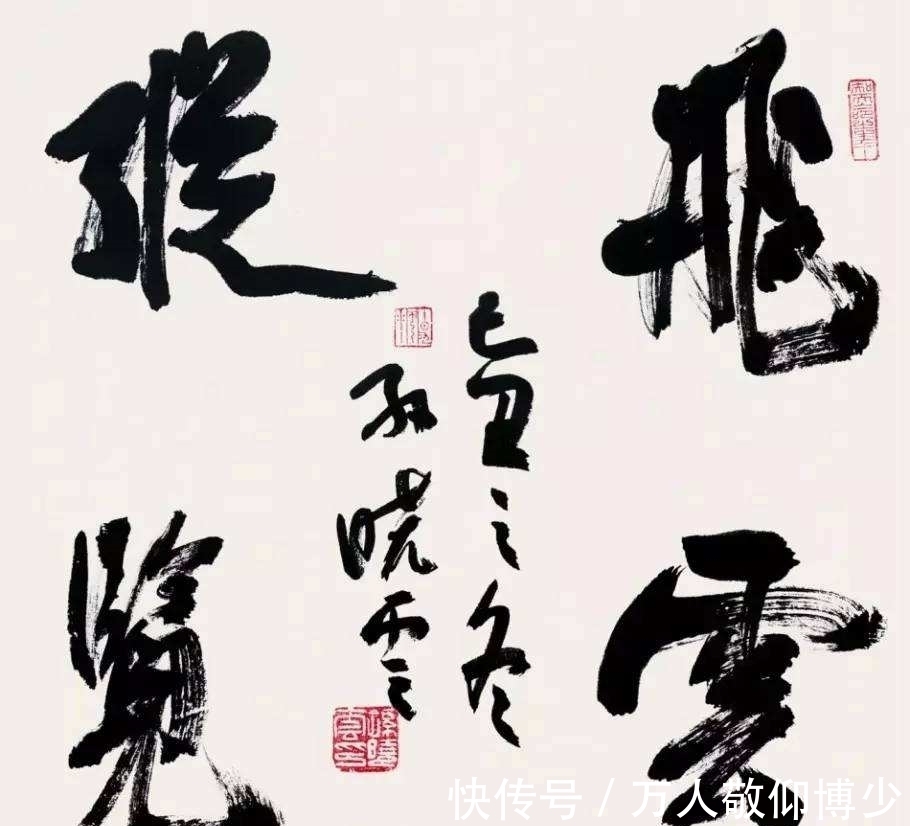 飛雲
縱覽
己丑之冬
孫曉雲
快传号 / 万人敬仰博少